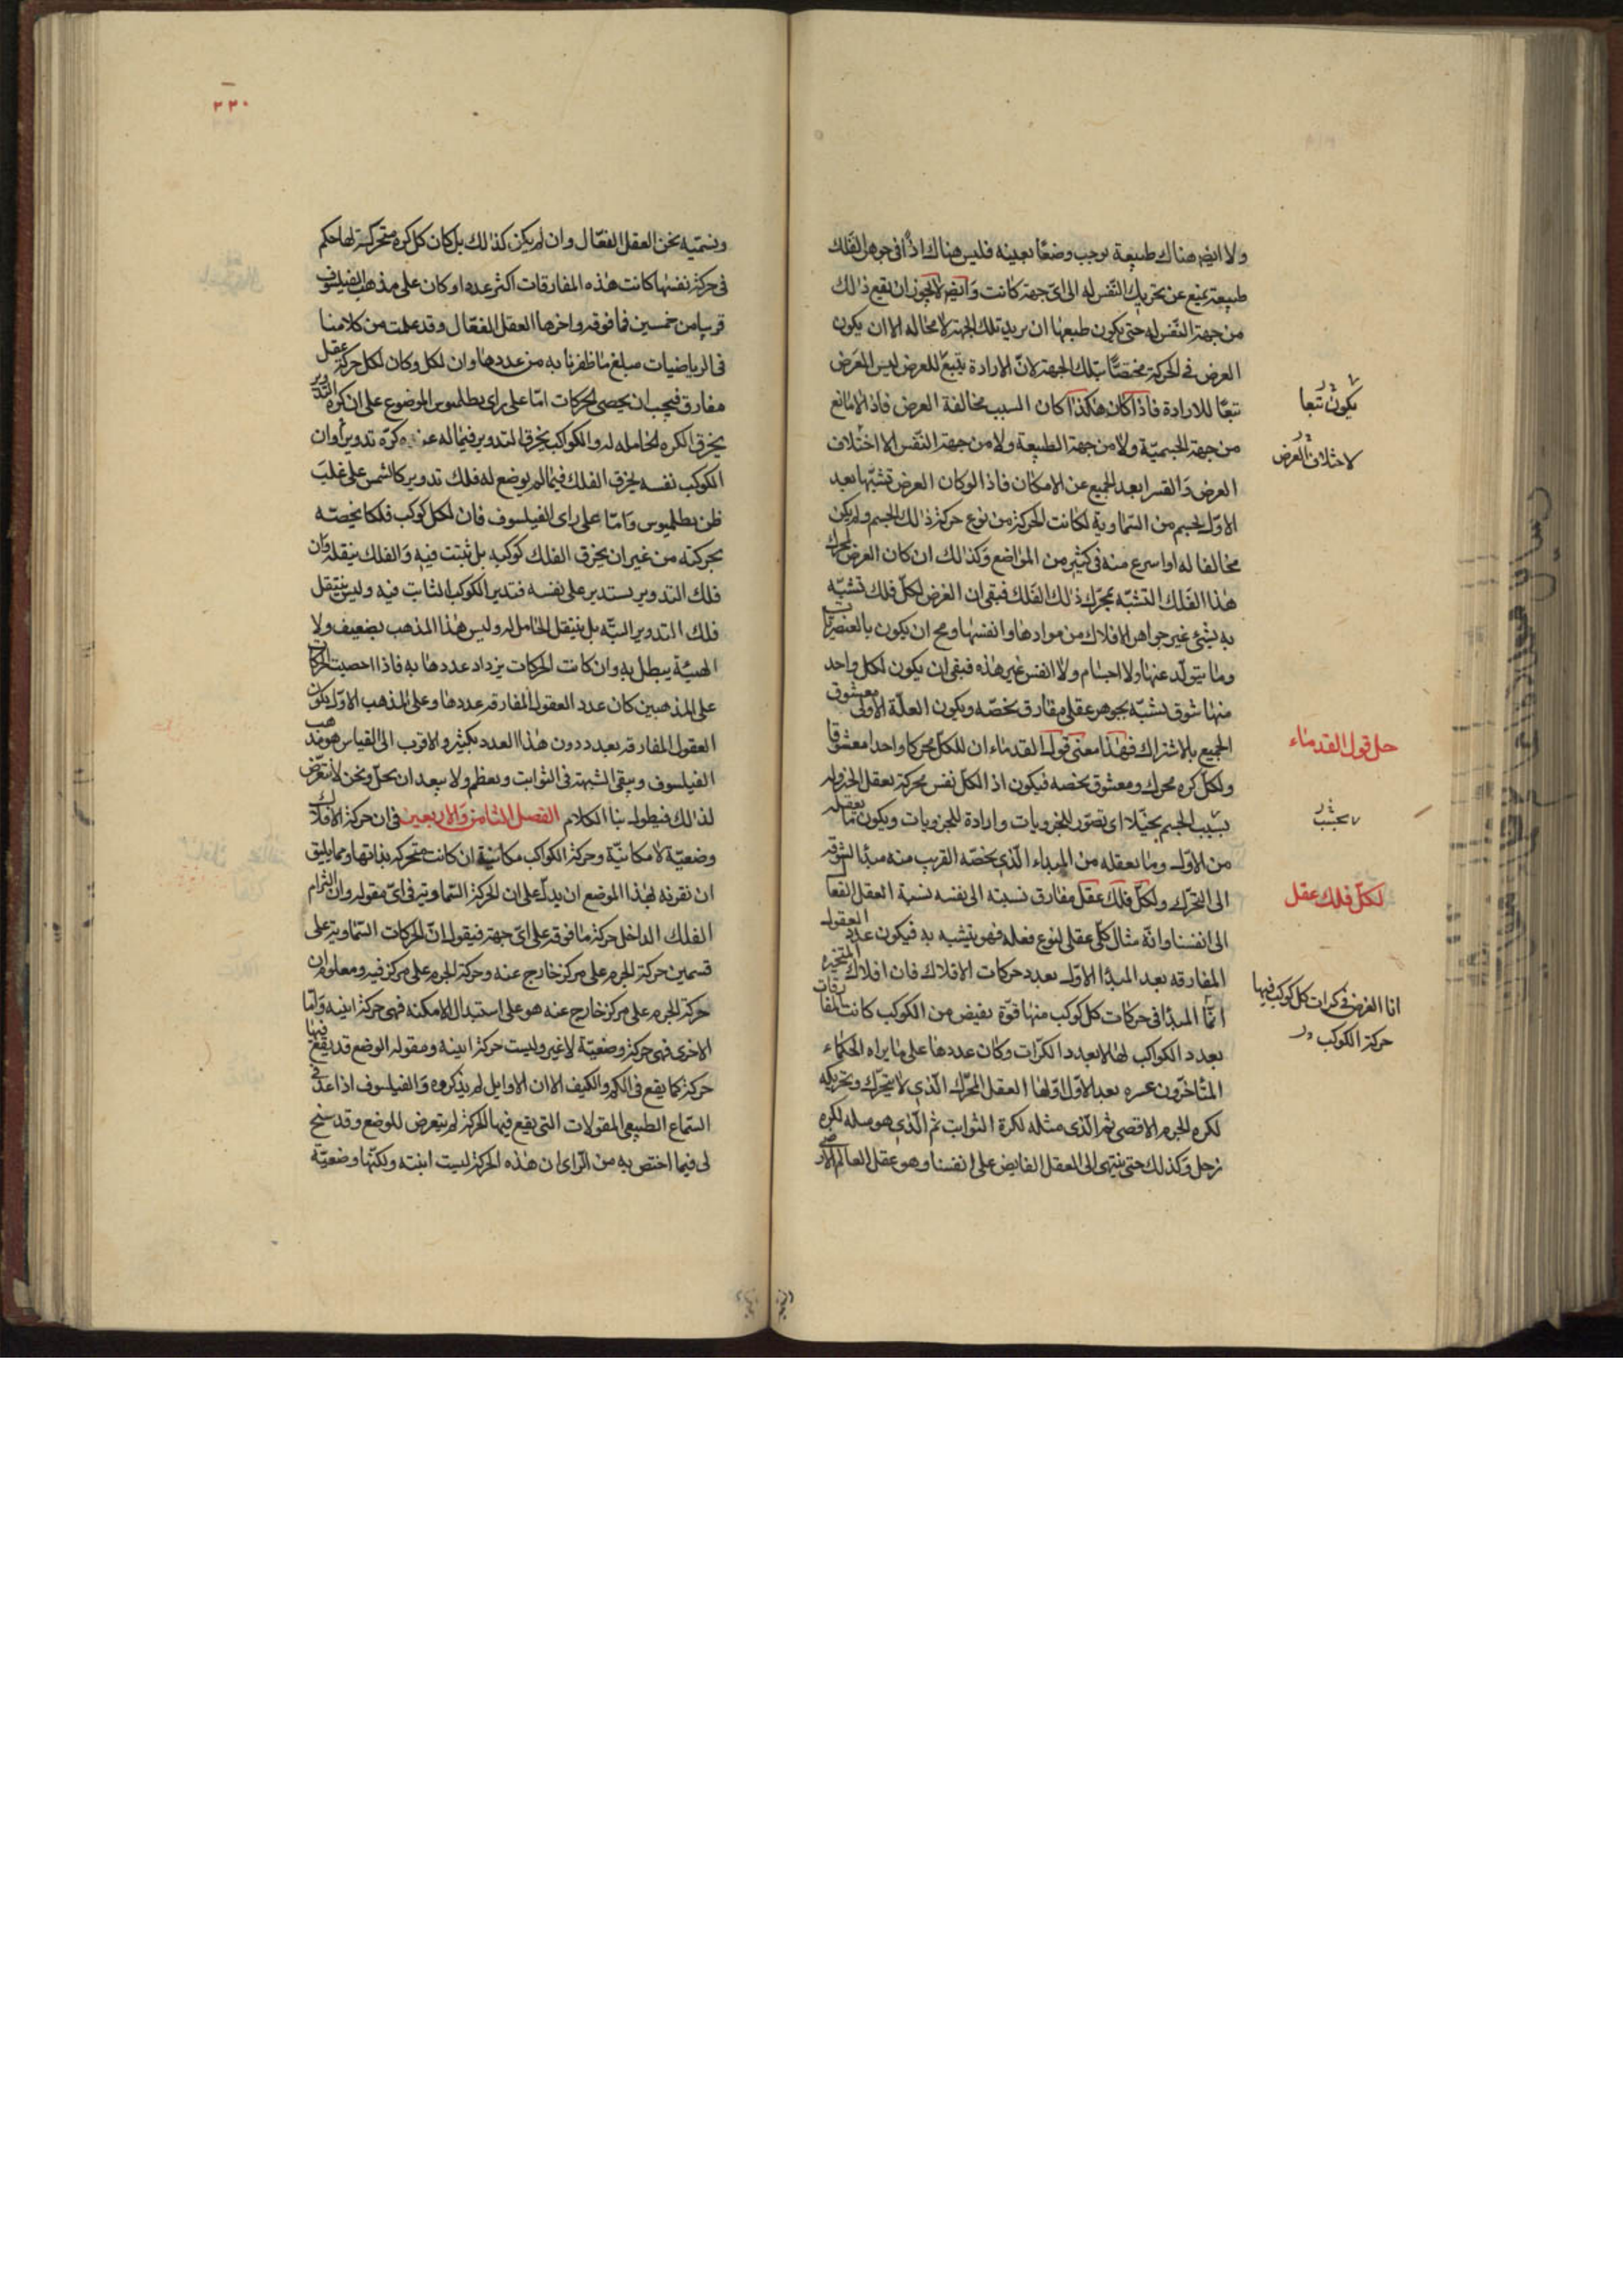 ولا ايضا هناك طبيعة توجب وضعًا بعينه فليس هناك اذًا في جوهر الفلك
طبيعة تمنع عن تحريك النّفس له الى اىّ جهة كانت وَايضا لا يجوز ان يقع ذلك
من جهة النّفس له حتى يكون طبعها ان يريد تلك الجهة لا محاله الا ان يكون
الغرض في الحركة مختصًّا بتلك الجهة لانّ الارادة تتبع للغرض ليس الغرض
تبعًا للارادة فاذا كان هكذا كان السبب مخالفة الغرض فاذًا لا مانع
من جهة الجسميّة ولا من جهة الطبيعة ولا من جهة النّفس الا اختلاف
الغرض وَالقسر ابعد الجميع عن الامكان فاذًا لو كان الغرض تشبّها بعد
الاوّل بجسم من السّماوية لكانت الحركة من نوع حركة ذلك الجسم ولم يكن
مخالفا له او اسرع منه في كثير من المواضع وَكذلك ان كان الغرض لمحرك
هذا الفَلك التشبّه بمحرّك ذلك الفَلك فبقى ان الغرض لكلّ فلك تشبّه
به بشئ غير جواهر الافلاك من موادها وانفسها ومح ان يكون بالعنصريات
وما يتولّد عنها ولا اجسام ولا انفس غير هذه فبقى ان يكون لكل واحد
منها شوق تشبّه بجوهر عقلى مفارق يخصّه ويكون العلّة الاولى معشوق
الجميع بالاشتراك فهذا معنى قول القدماء ان للكلّ محركا واحدا معشوقا
ولكلّ كره محرك ومعشوق يخصه فيكون اذ الكلّ نفس محركة تعقل الخير وله
بسبب الجسم تخيّلا اى تصوّر للجزويات وارادة للجزويات ويكون ما يعقله
من الاوّل وما يعقله من المبداء الّذي يخصّه القريب منه مبدأ الشوقه
الى التحرّك ولكلّ فلك عقل مفارق نسبته الى نفسه نسبة العقل الفعا
الى انفسنا وانّه مثال كلّى عقلى لنوع فعله فهو يتشبه به فيكون عدد العقول
المفارقه بعد المبدأ الاوّل بعدد حركات الافلاك فان افلاك المتحيره
انمّا المبدأ في حركات كل كوكب منها قوّة يفيض من الكوكب كانت المفارقات
بعدد الكواكب لها لا بعدد الكرّات وكان عددها على ما يراه الحكماء
المتاخّرون عسره بعد الاوّل اوّلها العقل المحرّك الّذي لا يتحرّك وتحريكه
لكره الجرم الاقصى ثم الّذى مثله لكرة الثوابت ثم الّذي هو مثله لكره
زحل وَكذلك حتى ينتهى الى العقل الفايض على انفسنا وهو عقل العالم الارضى
يكون تبعا
لاختلاف الغرض
حل قول القدماء
بسبب
لكلّ فلك عقل
انا الغرض في كرات كل كوكب فيها
حركة الكوكب
٢٣٠
ونسمّيه نحن العقل الفعّال وان لم يكن كذلك بل كان كل كره متحركة لها حكم
في حركة نفسها كانت هذه المفارقات اكثر عددا وكان على مذهب الفيلسوف
قريبا من خمسين فما فوقه واخرها العقل الفعّال وقد علمت من كلامنا
في الرياضيات مبلغ ما ظفرنا به من عددها وان لكل وكان لكل حركة عقل
مفارق فيجب ان يحصى الحركات امّا على راى بطلميوس الموضوع على ان كره التدوير
يخرق الكره الحامله له والكواكب يخرق التدوير فيما له عنده كرّه تدوير أوان
الكوكب نفسه يخرق الفلك فيما لم يوضع له فلك تدوير كالشمس على غلبَ
ظن بطلميوس وَامّا على راى الفيلسوف فان لكل كوكب فلكا يخصّه
بحركته من غير ان يخرق الفلك كوكبه بل ثبتت فيه وَالفلك ينقله وَان
فلك التدوير يستدير على نفسه فتدير الكوكب الثابت فيه وليس ينتقل
فلك التدوير البتّه بل ينتقل الحامل له وليس هذا المذهب بضعيف ولا
الهيئة يبطل به وان كانت الحركات يزداد عددها به فاذا احصيت الحركات
على المذهبين كان عدد العقول المفارقه عددها وعلى المذهب الاوّل يكون
العقول المفارقه بعدد دون هذا العدد بكثير والاقرب الى القياس هو مذهب
الفيلسوف ويبقى الشبهة في الثوابت ويعظم ولا يبعد ان يحلّ ونحن لا نتعرّض
لذلك فيطول بنا الكلام الفصل الثامن وَالاربعين في ان حركة الافلاك
وضعيّة لا مكانيّة وحركة الكواكب مكانية ان كانت متحركه بذاتها ومما يليق
ان نقرنه بهذا الموضع ان يدلّ على ان الحركة السّماويّه في اىّ مقوله وان الرّام
الفلك الداخل حركة ما فوقه على اىّ جهة فيقول انّ الحركات السّماوية على
قسمين حركة الجرم على مركز خارج عنه وحركة الجرم على مركز فيه ومعلوم ان
حركة الجرم على مركز خارج عنه هو على استبدال الامكنه فهى حركة اينيه وَامّا
الاخرى فهى حركة وضعيّة لا غير وليست حركة اينيه ومقوله الوضع قد يقع فيها
حركة كما يقع في الكم والكيف الا ان الاوايل لم يذكروه وَالفيلسوف اذا عدّ في
السّماع الطبيعى المقولات التى يقع فيها الحركة لم يتعرض للوضع وقد سنح
لى فيما اختص به من الرّاى ان هذه الحركة ليست اينيه ولكنّها وضعيّة